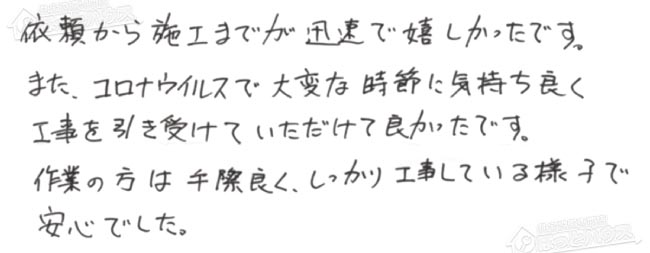 依頼から施工までが迅速で嬉しかったです。
また、コロナウイルスで大変な時節に気持ち良く
工事を引き受けていただけて良かったです。
作業の方は手際良く、しっかり工事している様子で
安心でした。